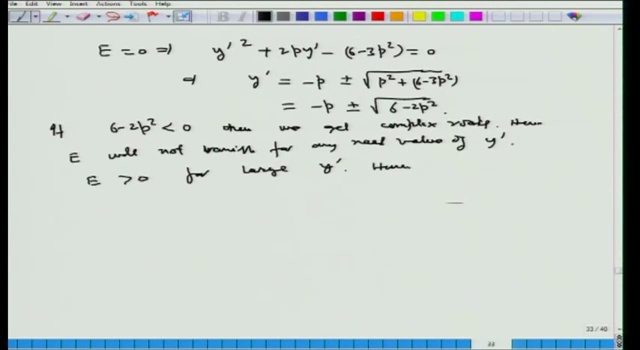 File Edit View Insert Actions Tools Help
E = 0 ⇒ y'² + 2py' - (6-3p²) = 0
⇒ y' = -p ± √p² + (6-3p²)
= -p ± √6-2p².
If 6-2p² < 0 then we get complex roots. Hence
E will not vanish for any real value of y'.
E > 0 for large y'. Hence
33 / 40
33